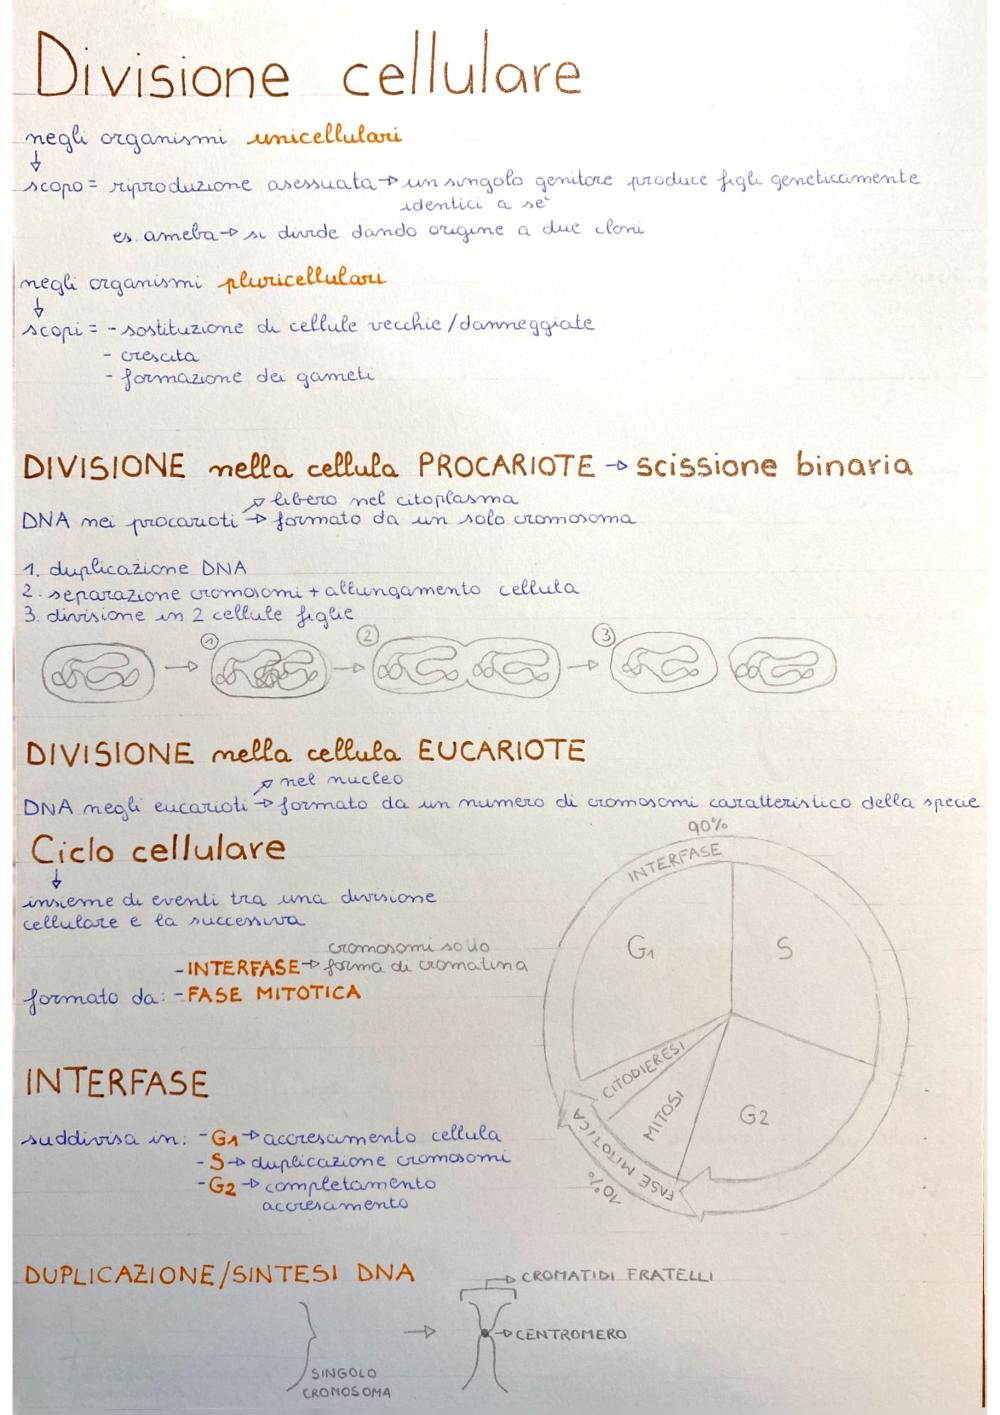 Divisione cellulare
negli organismi unicellulari
↓
scopo = riproduzione asessuata → un singolo genitore produce figli geneticamente
identici a sé
es. ameba → si divide dando origine a due cloni
negli organismi pluricellulari
↓
scopi = - sostituzione di cellule vecchie/danneggiate
- crescita
- formazione dei gameti
DIVISIONE nella cellula PROCARIOTE → scissione binaria
↗ libero nel citoplasma
DNA nei procarioti → formato da un solo cromosoma
1. duplicazione DNA
2. separazione cromosomi + allungamento cellula
3. divisione in 2 cellule figlie
1 → 2 → 3 →
DIVISIONE nella cellula EUCARIOTE
↗ nel nucleo
DNA negli eucarioti → formato da un numero di cromosomi caratteristico della specie
Ciclo cellulare
↓
insieme di eventi tra una divisione
cellulare e la successiva
cromosomi sotto
- INTERFASE → forma di cromatina
formato da: - FASE MITOTICA
90%
INTERFASE
G1
S
CITODIERESI
MITOSI
G2
FASE MITOTICA
10%
INTERFASE
suddivisa in: - G1 → accrescimento cellula
- S → duplicazione cromosomi
- G2 → completamento
accrescimento
DUPLICAZIONE/SINTESI DNA
→ CROMATIDI FRATELLI
→ CENTROMERO
SINGOLO
CROMOSOMA